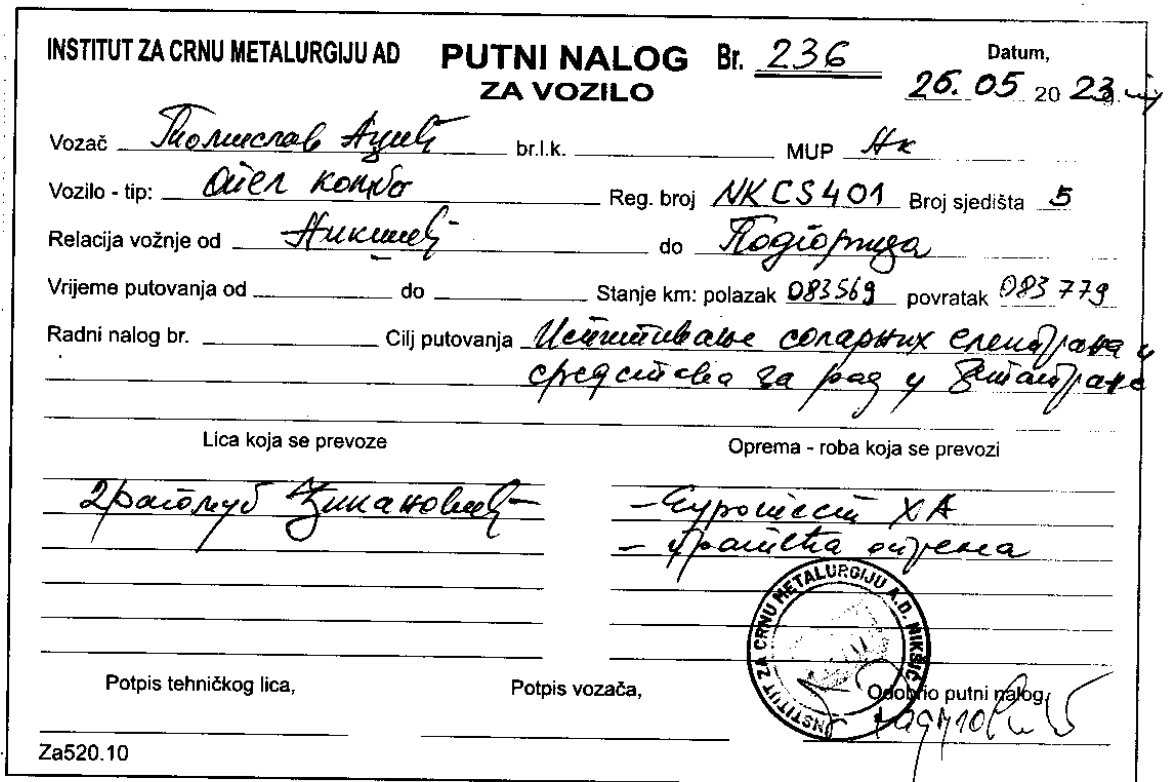 INSTITUT ZA CRNU METALURGIJU AD PUTNI NALOG Br. 236 Datum,
ZA VOZILO 26. 05 20 23
Vozač br.l.k. MUP Нк
Vozilo - tip: Опел комбо Reg. broj NKCS401 Broj sjedišta 5
Relacija vožnje od Никшић do Подгорица
Vrijeme putovanja od do Stanje km: polazak 083569 povratak 083779
Radni nalog br. Cilj putovanja Испитивање соларних електрана и
средства за рад у
Lica koja se prevoze Oprema - roba koja se prevozi
Драгољуб - Еуротест ХА
- заштитна опрема
INSTITUT ZA CRNU METALURGIJU A.D. NIKŠIĆ
Potpis tehničkog lica, Potpis vozača, Odobrio putni nalog,
Za520.10